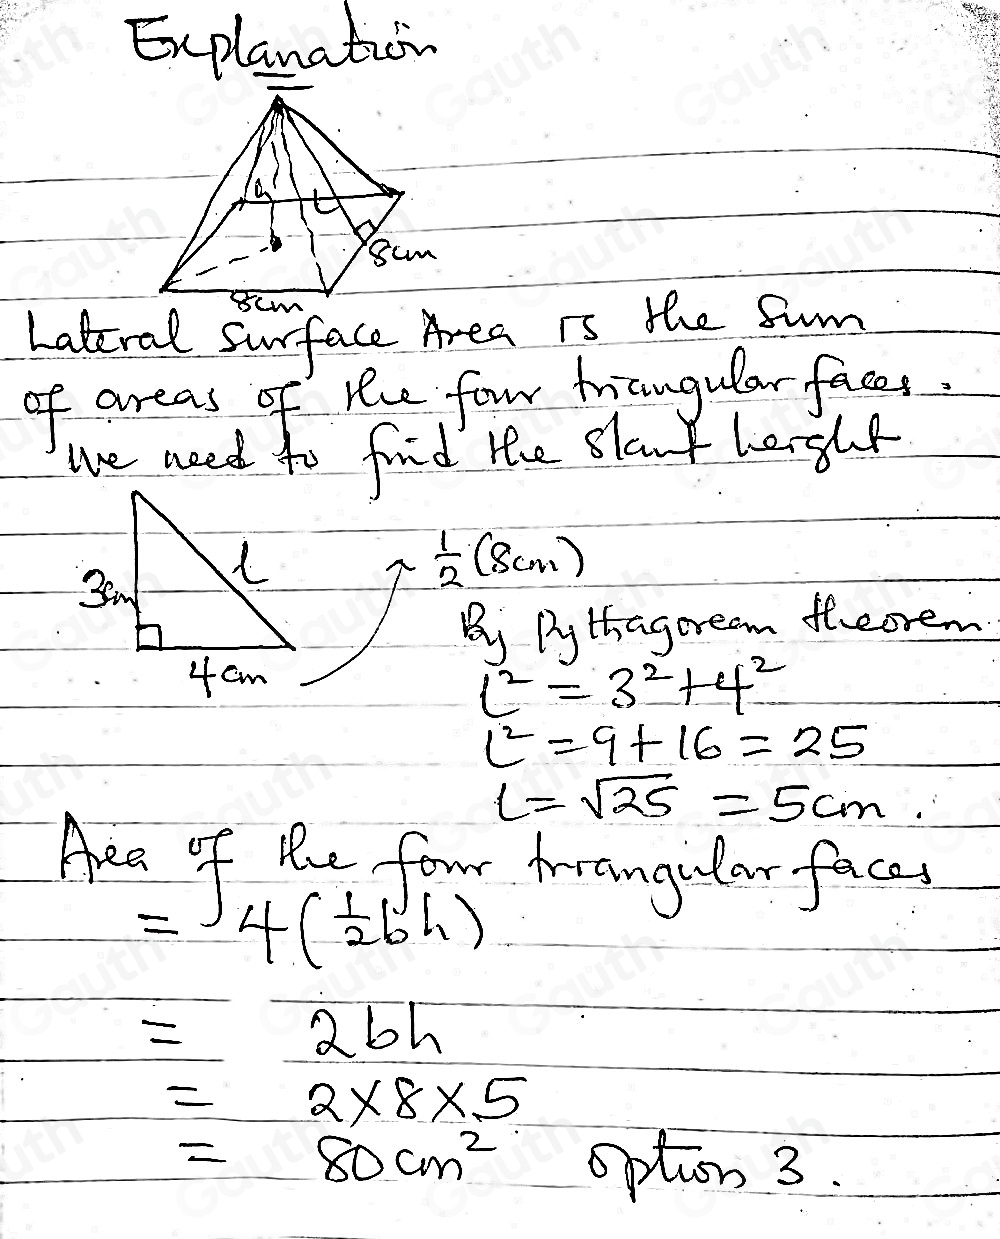 Explanation
l
8cm
8cm
Lateral Surface Area is the Sum
of areas of the four triangular faces.
We need to find the slant height
3cm
l
4cm
1/2 (8cm)
By Pythagoream theorem
l² = 3² + 4²
l² = 9 + 16 = 25
l = √25 = 5cm.
Area of the four triangular faces
= 4(1/2bh)
= 2bh
= 2×8×5
= 80cm² option 3.